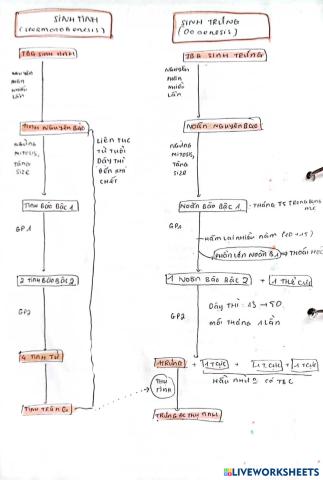 SINH TINH
(SPERMATOGENESIS)
TBG SINH TINH
NGUYÊN
PHÂN
NHIỀU
LẦN
TINH NGUYÊN BÀO
NGỪNG
MITOSIS,
TĂNG
SIZE
LIÊN TỤC
TỪ TUỔI
DẬY THÌ
ĐẾN KHI
CHẾT
TINH BÀO BẬC 1
GP1
2 TINH BÀO BẬC 2
GP2
4 TINH TỬ
TINH TRÙNG
SINH TRỨNG
(OOGENESIS)
TBG SINH TRỨNG
NGUYÊN
PHÂN
NHIỀU
LẦN
NOÃN NGUYÊN BÀO
NGỪNG
MITOSIS,
TĂNG
SIZE
NOÃN BÀO BẬC 1 - THÁNG T5 TRONG BỤNG
MẸ
GP1
HÃM LẠI NHIỀU NĂM
PHẦN LỚN NOÃN B.1 → THOÁI HOÁ
1 NOÃN BÀO BẬC 2 + 1 THỂ CỰC
GP2
DẬY THÌ: 13 → 50
MỖI THÁNG 1 LẦN
1 TRỨNG + 1 TC/C + 1 TC/C + 1 TC/C
THỤ
TINH
TRỨNG ĐC THỤ TINH
LIVEWORKSHEETS